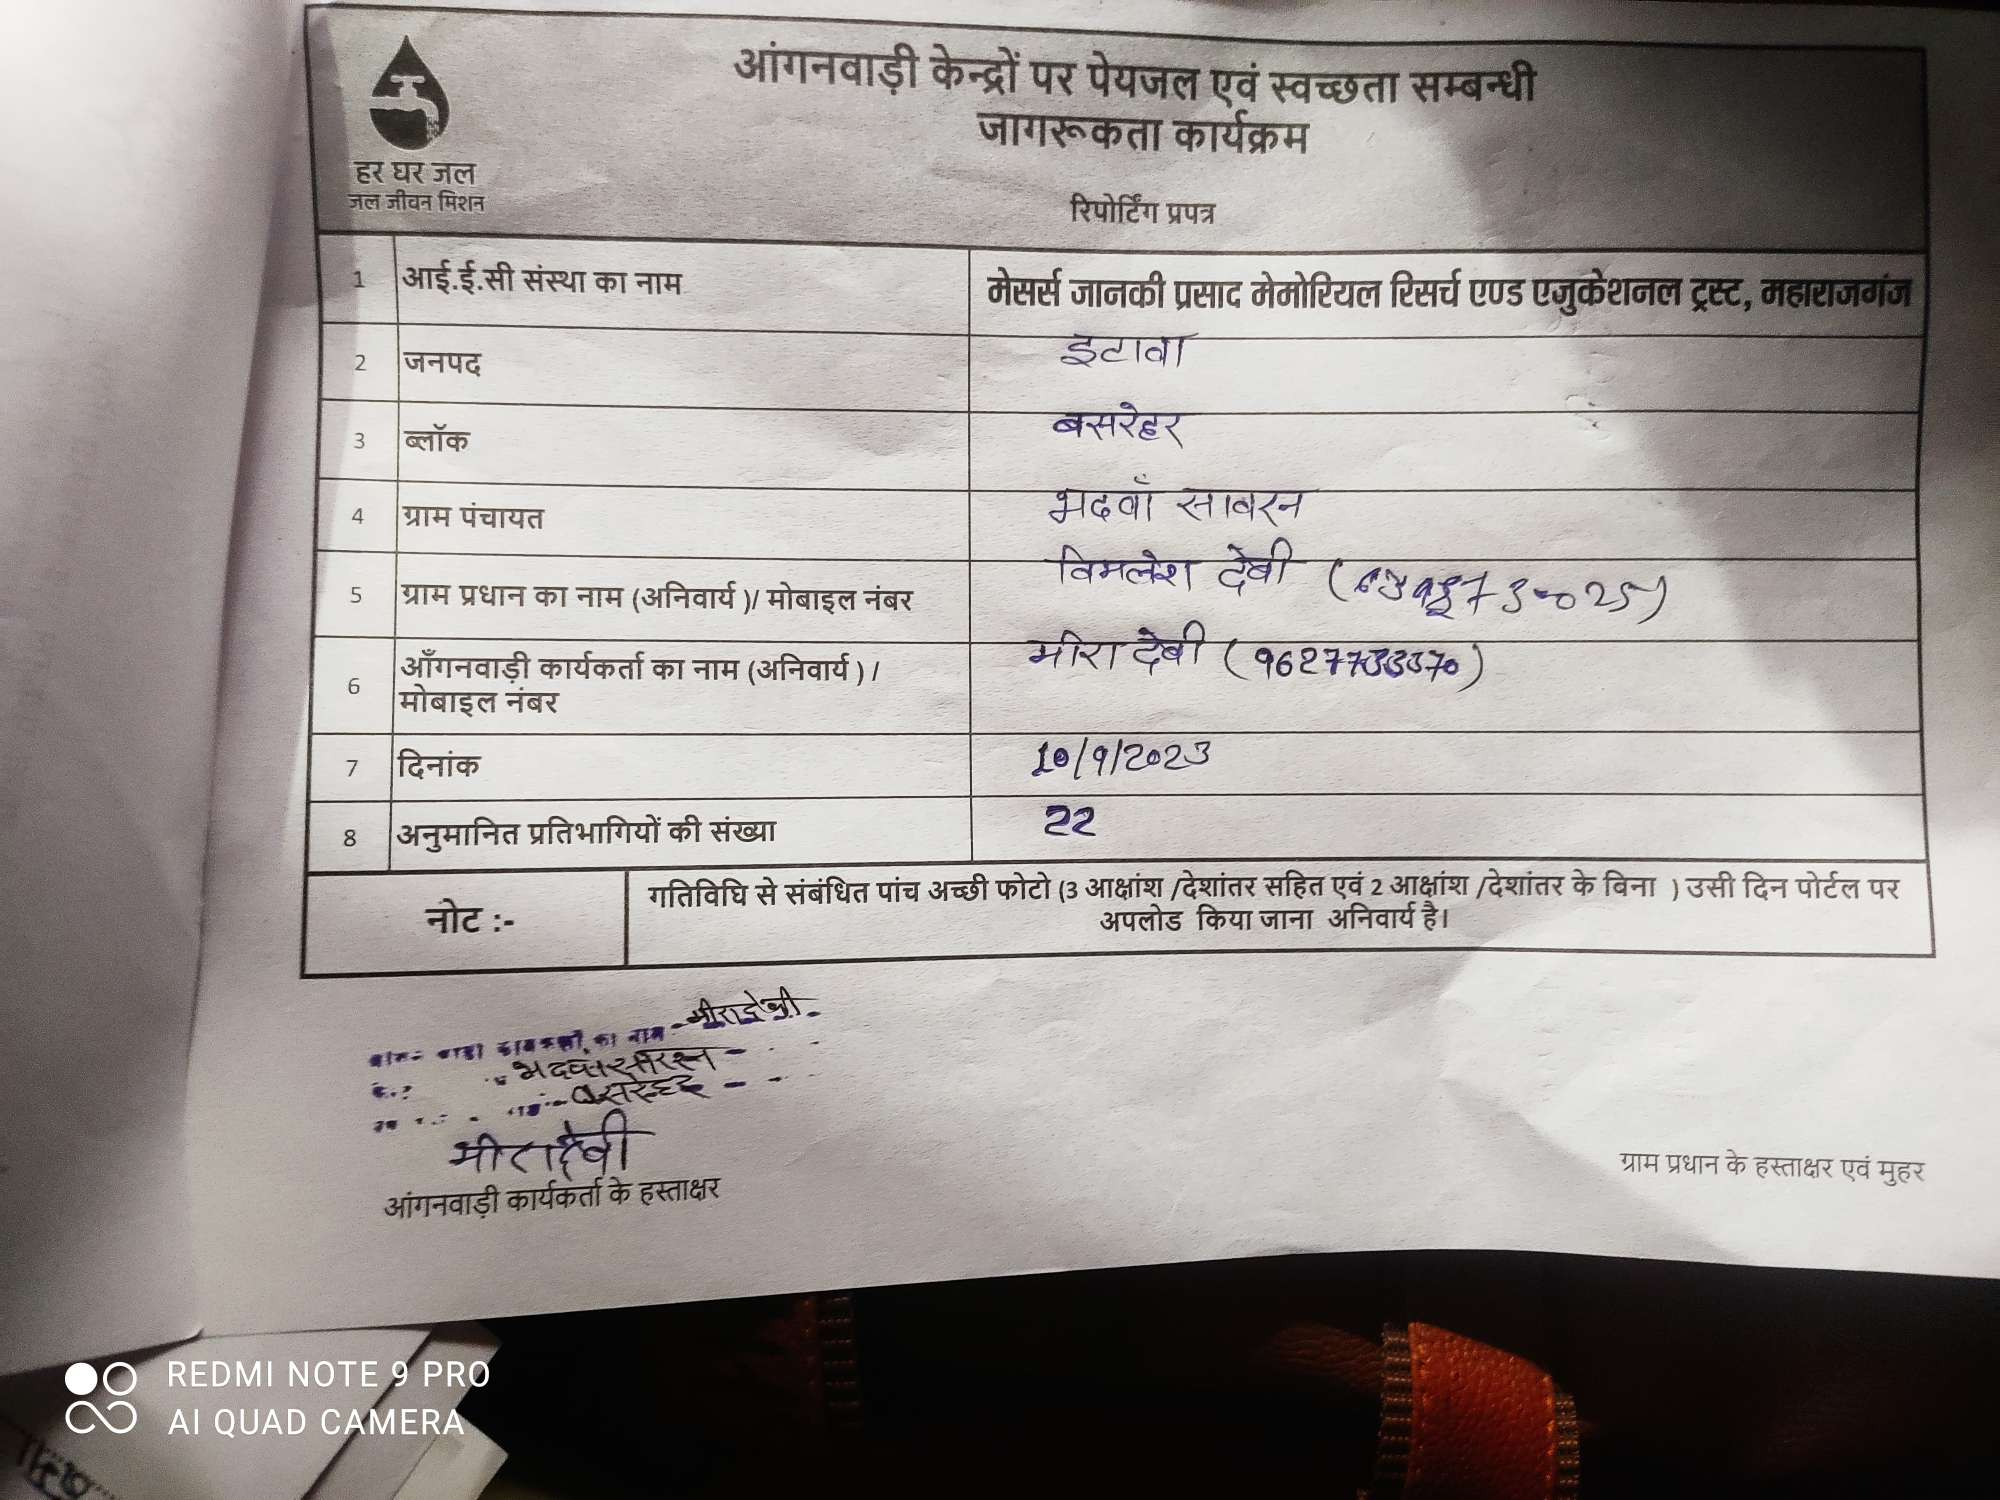 हर घर जल
जल जीवन मिशन
आंगनवाड़ी केन्द्रों पर पेयजल एवं स्वच्छता सम्बन्धी
जागरूकता कार्यक्रम
रिपोर्टिंग प्रपत्र
1 आई.ई.सी संस्था का नाम मेसर्स जानकी प्रसाद मेमोरियल रिसर्च एण्ड एजुकेशनल ट्रस्ट, महाराजगंज
2 जनपद इटावा
3 ब्लॉक बसरेहर
4 ग्राम पंचायत भदवाँ सावरन
5 ग्राम प्रधान का नाम (अनिवार्य )/ मोबाइल नंबर विमलेश देवी
6 आँगनवाड़ी कार्यकर्ता का नाम (अनिवार्य ) /
मोबाइल नंबर मीरा देवी
7 दिनांक 10/9/2023
8 अनुमानित प्रतिभागियों की संख्या 22
नोट :- गतिविधि से संबंधित पांच अच्छी फोटो (3 आक्षांश /देशांतर सहित एवं 2 आक्षांश /देशांतर के बिना ) उसी दिन पोर्टल पर
अपलोड किया जाना अनिवार्य है।
का नाम - मीरा देवी
बसरेहर
मीरा देवी
आंगनवाड़ी कार्यकर्ता के हस्ताक्षर
ग्राम प्रधान के हस्ताक्षर एवं मुहर
REDMI NOTE 9 PRO
AI QUAD CAMERA